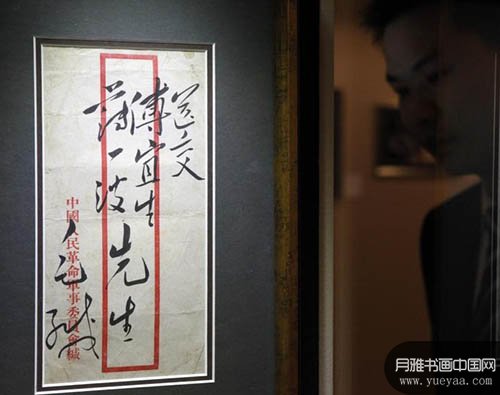 送交
傅宜生
薄一波
先生
中國人民革命軍事委員會緘
毛緘
月雅书画中国网
www.yueyaa.com